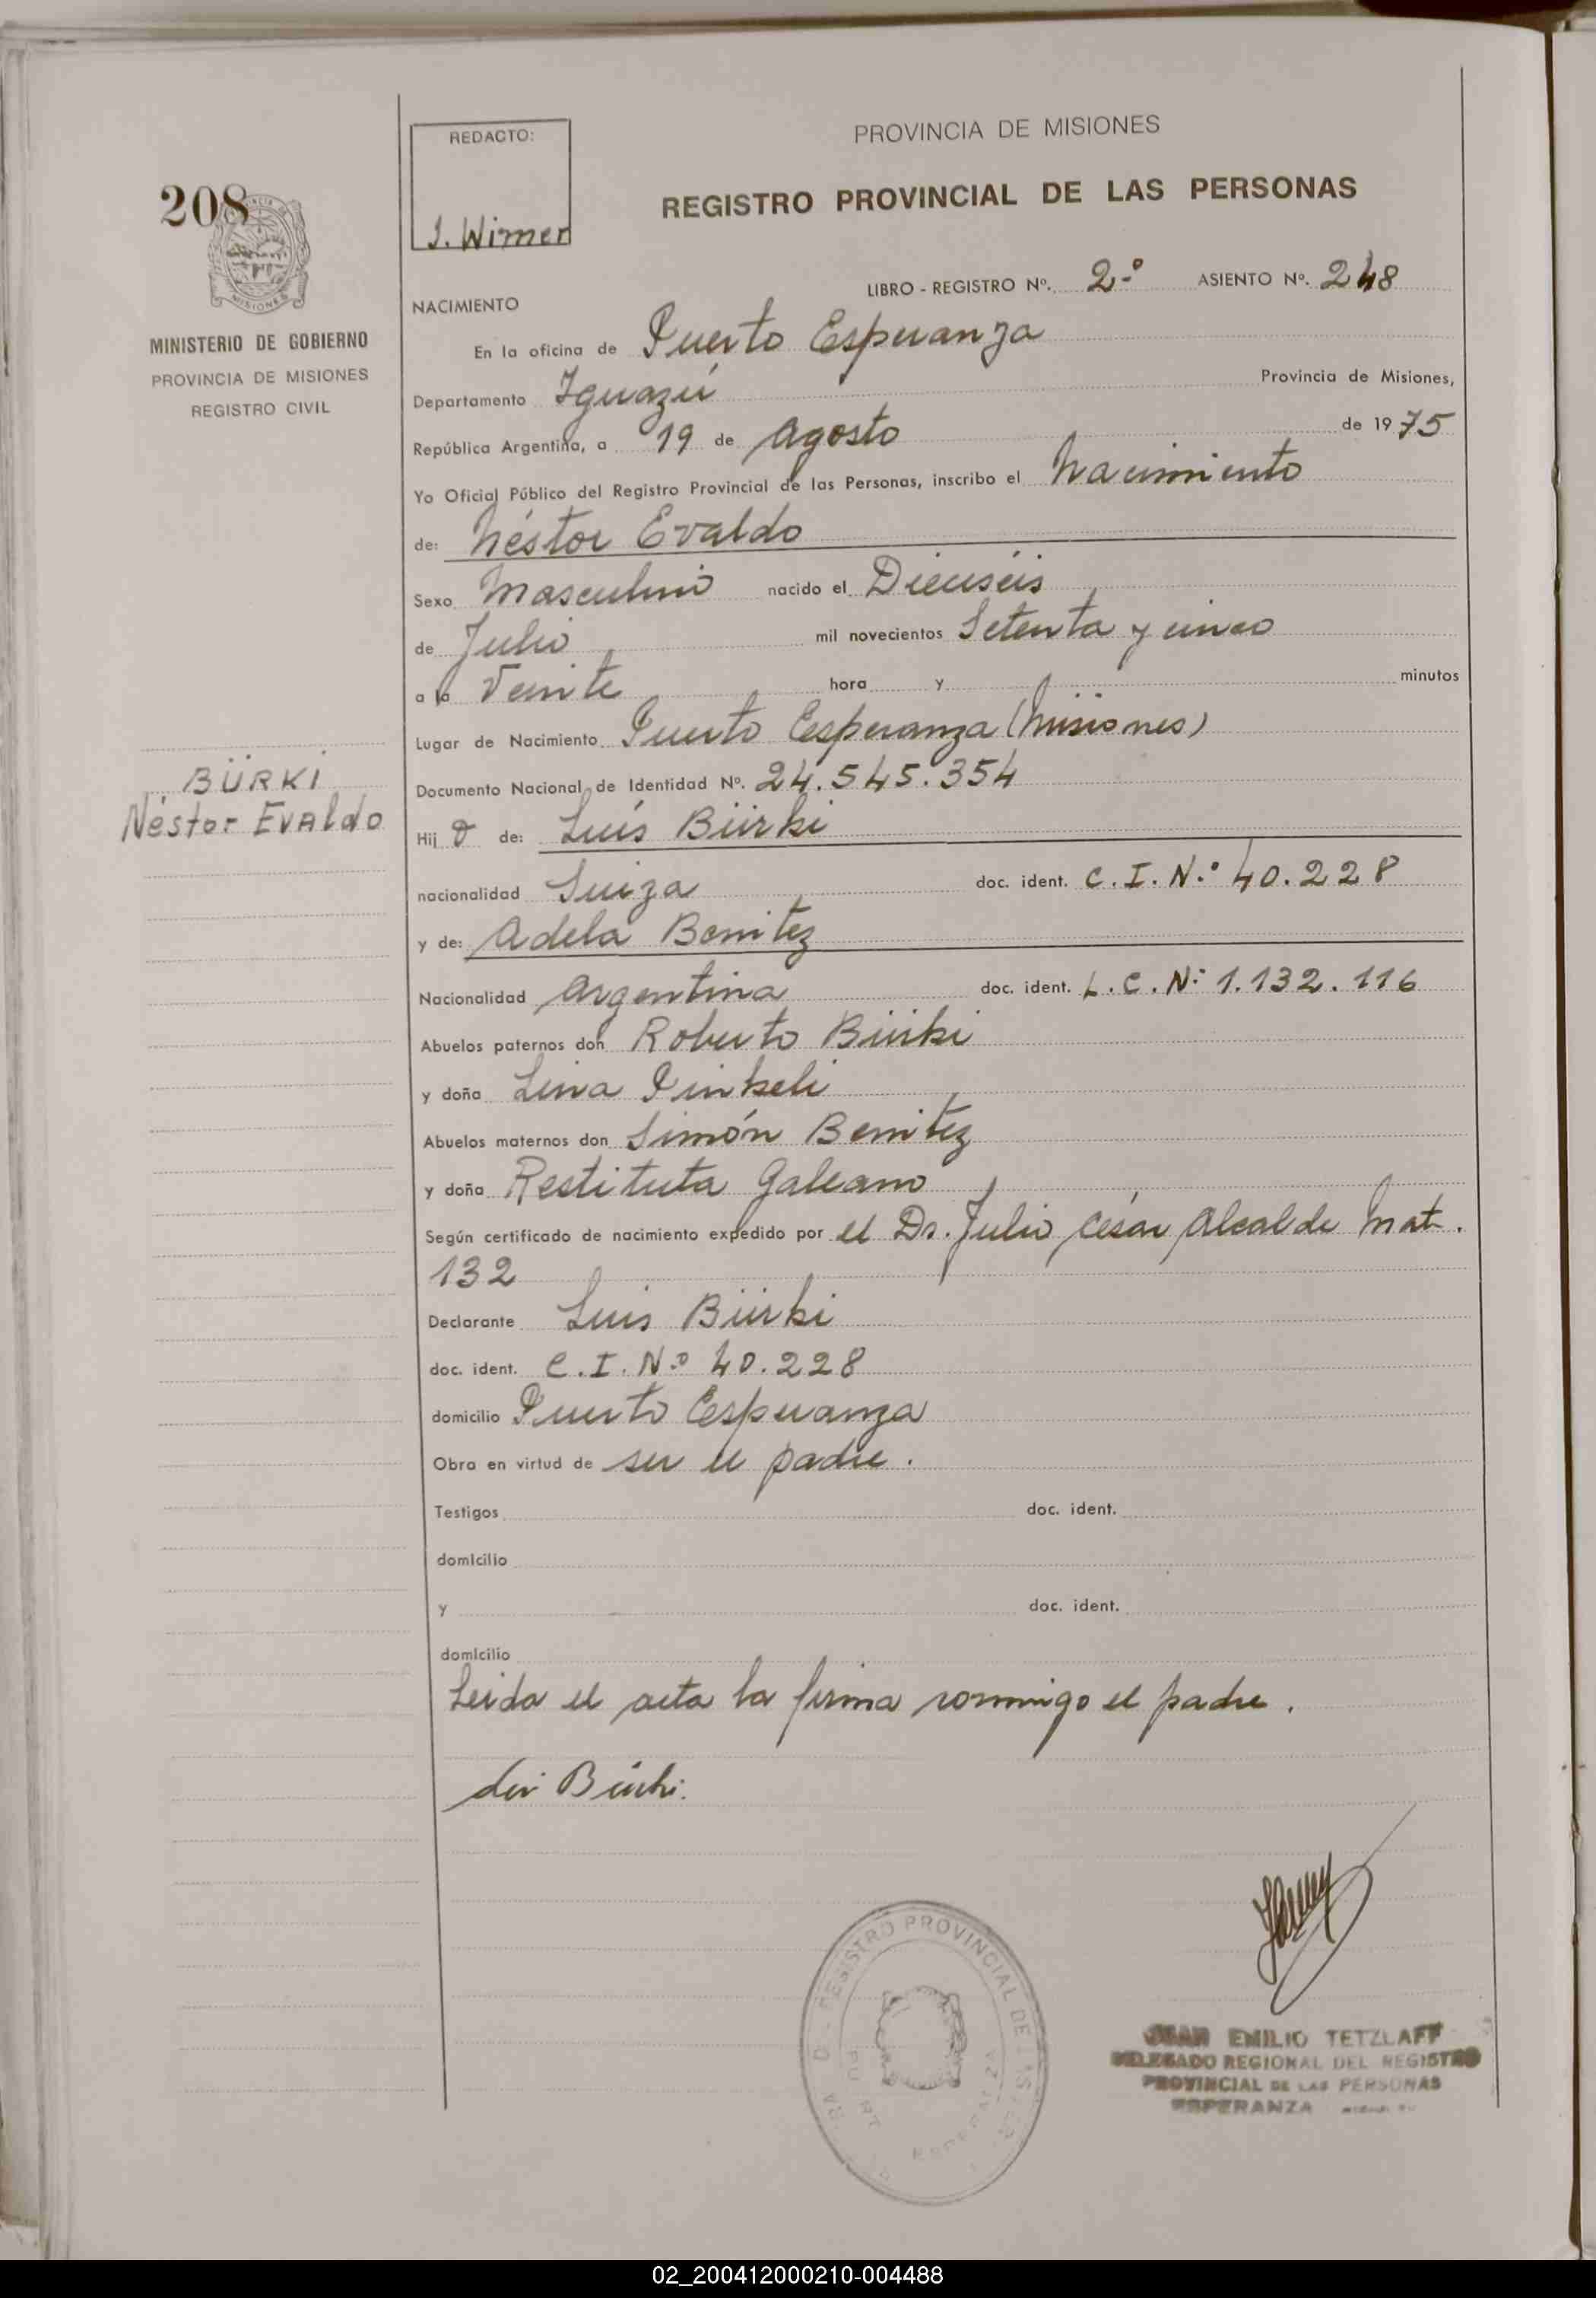 208
MINISTERIO DE GOBIERNO
PROVINCIA DE MISIONES
REGISTRO CIVIL
BÜRKI
Néstor Evaldo
REDACTO:
J. Wimer
PROVINCIA DE MISIONES
REGISTRO PROVINCIAL DE LAS PERSONAS
LIBRO - REGISTRO Nº. 2º ASIENTO Nº. 248
NACIMIENTO
En la oficina de Puerto Esperanza
Departamento Iguazú Provincia de Misiones,
República Argentina, a 19 de Agosto de 1975
Yo Oficial Público del Registro Provincial de las Personas, inscribo el Nacimiento
de: Néstor Evaldo
Sexo Masculino nacido el Dieciséis
de Julio mil novecientos Setenta y cinco
a la Veinte hora y minutos
Lugar de Nacimiento Puerto Esperanza (Misiones)
Documento Nacional de Identidad Nº. 24.545.354
Hijo de: Luís Bürki
nacionalidad Suiza doc. ident. C.I.N.º 40.228
y de: Adela Benitez
Nacionalidad Argentina doc. ident. L.C.Nº 1.132.116
Abuelos paternos don Roberto Bürki
y doña Lina Pinkeli
Abuelos maternos don Simón Benitez
y doña Restituta Galeano
Según certificado de nacimiento expedido por el Dr. Julio César Alcalde Mat.
132
Declarante Luis Bürki
doc. ident. C.I.N.º 40.228
domicilio Puerto Esperanza
Obra en virtud de ser el padre.
Testigos doc. ident.
domicilio
y doc. ident.
domicilio
Leida el acta la firma conmigo el padre.
Bürki
REGISTRO PROVINCIAL DE
JUAN EMILIO TETZLAFF
DELEGADO REGIONAL DEL REGISTRO
PROVINCIAL DE LAS PERSONAS
ESPERANZA
02_200412000210-004488